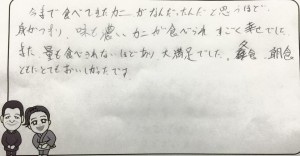 今まで食べてきたカニがなんだったんだと思うほど、
身がつまり、味も濃いカニが食べられ すごく幸せでした。
また、量も食べきれないほどあり大満足でした。夕食、朝食
ともにとてもおいしかったです。